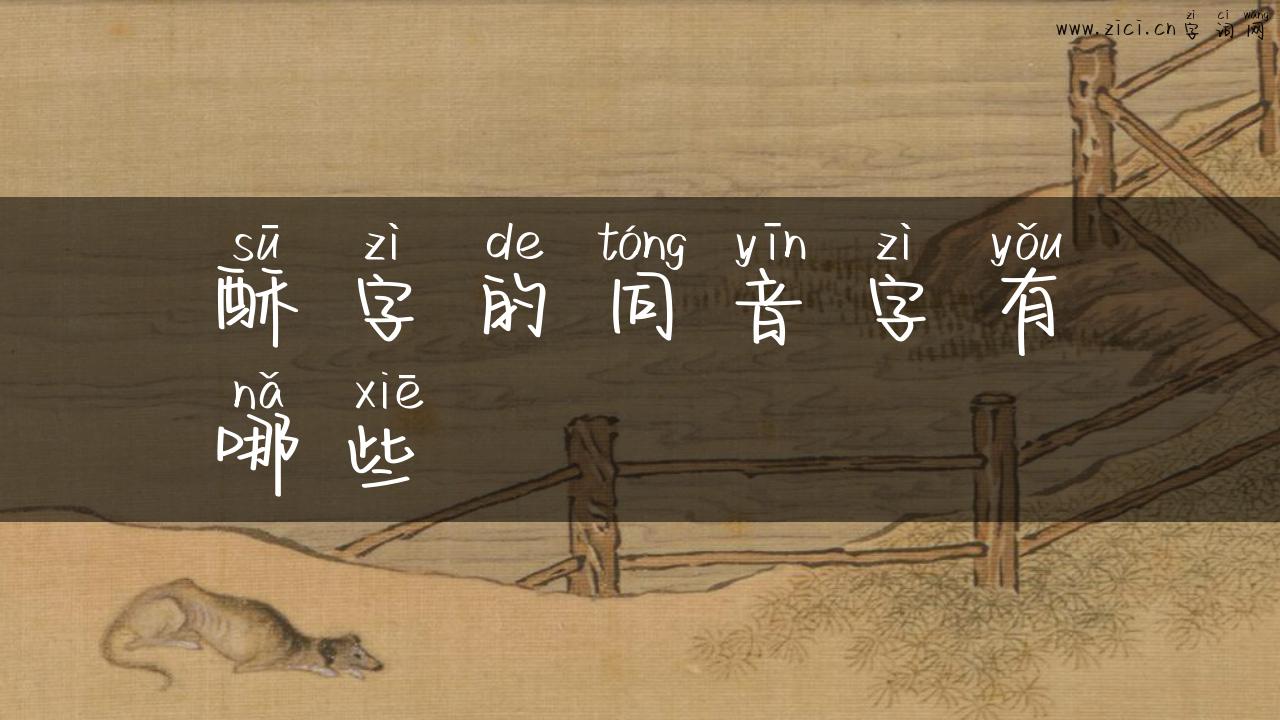 zì cí wǎng
www.zici.cn 字 词 网
sū zì de tóng yīn zì yǒu
酥 字 的 同 音 字 有
nǎ xiē
哪 些